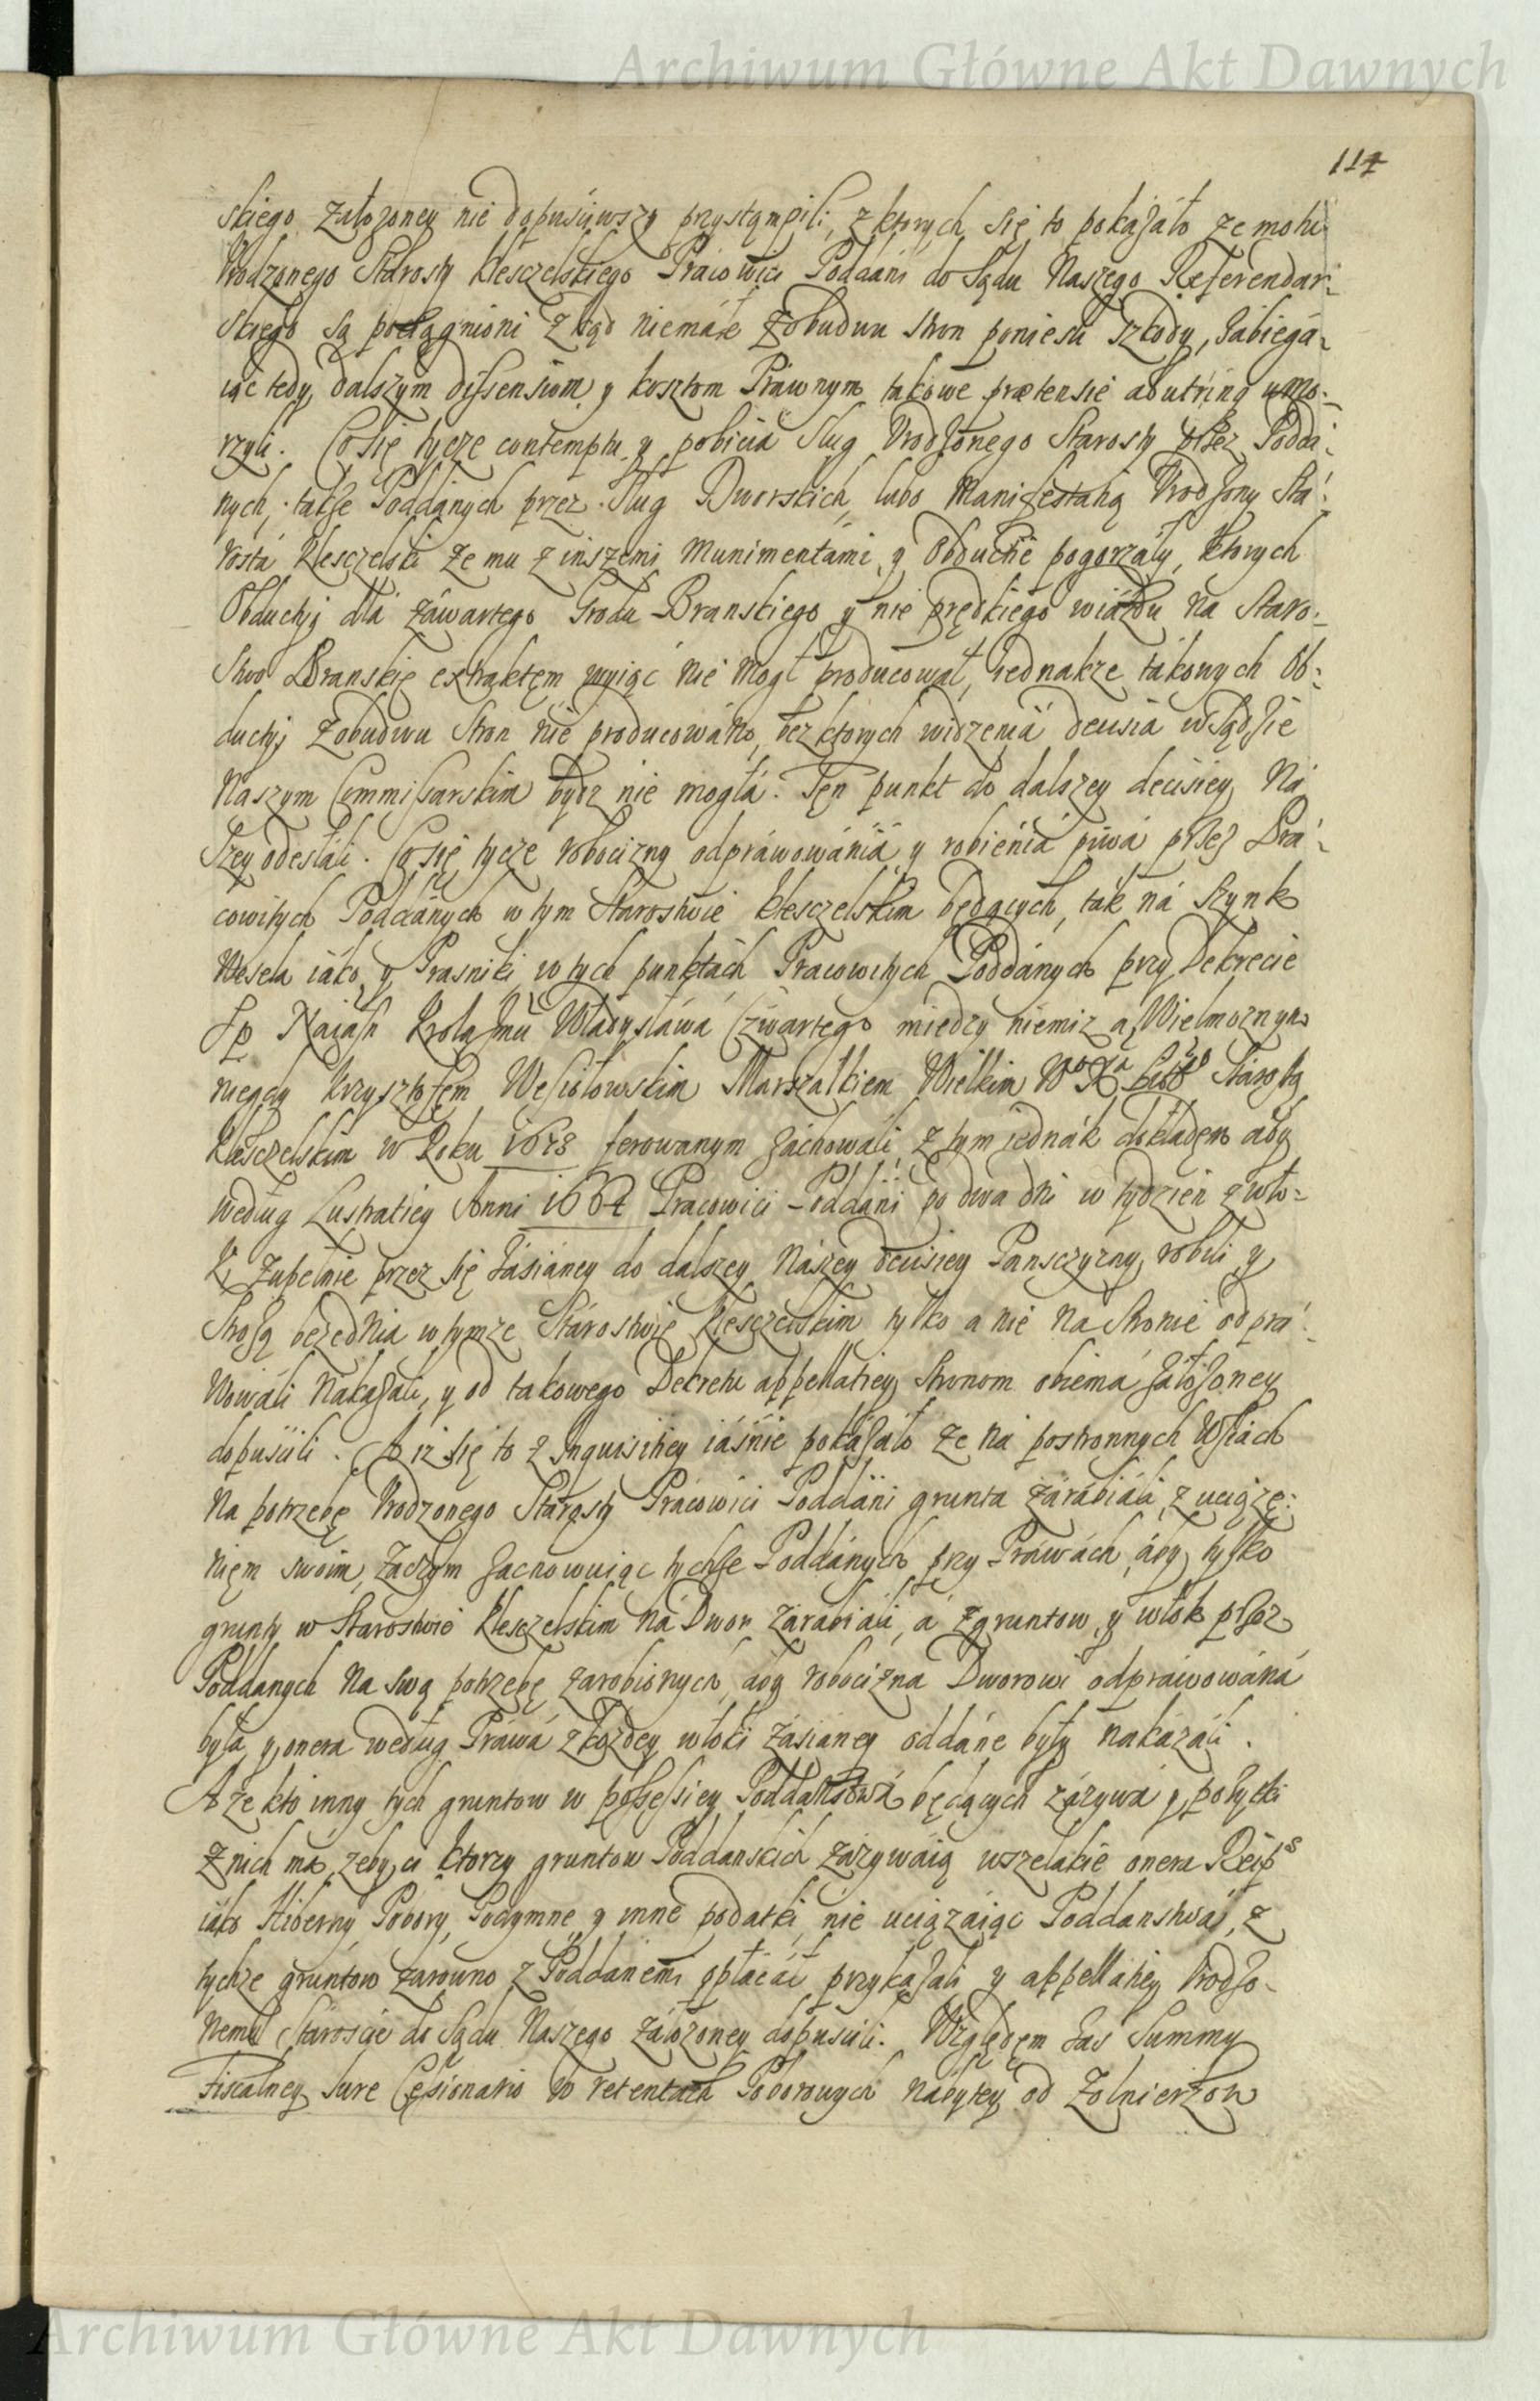 Archiwum Główne Akt Dawnych
114
skiego załozoney nie dopusciwszy przystąmpili, z ktorych się to pokazáło ze
Vrodzonego Starosty Klesczelskiego Prácowici Poddáni do Sądu Naszego Referendar-
skiego są pociągnioni zkąd niemáłe zobudwu stron ponieśli szkody, Zabiega-
iąc tedy dalszym dissensiom y kosztom Práwnym takowe prætensie abutring umo-
rzyli. Co się tycze contemptu y pobicia Sług Vrodzonego Starosty przez Poddá-
nych, takze Poddánych przez Sług Dworskich, lubo Manifestatią Vrodzony Stá-
rostá Klesczelski ze mu z inszemi Munimentámi y Obductie pogorzáły, ktorych
Obductyj dla záwartego Grodu Branskiego y nie prędkiego wiázdu na Staro-
stwo Branskie extraktem wyiąć nie mogł producował, iednakze tákowych Ob-
ductyj zobudwu stron nie producowáno, bez ktorych widzeniá decisia w Sądzie
Naszym Commissarskim bydz nie mogłá. Ten punkt do dalszey decisiey Ná-
szey odesłáli. Co się tycze robocizny odpráwowániá y robieniá piwá przez Prá-
cowitych Poddánych w tym Stárostwie Klesczelskim będących, ták ná Szynk
Wesela iáko y Prasniki, w tych punktách Pracowitych Poddánych przy Dekrecie
Sp Naiaśn Krolá Jmci Włádysłáwá Czwártego miedzy niemiz a Wielmoznym
niegdy Krzysztofem Wesiołowskim Marszałkiem Wielkim Wo Xa Litto Stárostą
Klesczelskim w Roku 1643 ferowanym záchowáli, z tym iednák dokłádem áby
według Lustratiey Anni 1664 Pracowici Poddáni po dwa dni w tydzien z wło-
ki zupełnie przez się zásiáney do dalszey Nászey decisiey Pansczyzny robili y
Strozą bezednia w tymze Stárostwie Klesczelskim tylko a nie na stronie odprá-
wowáli nakazáli, y od takowego Dekretu appellatiey stronom obiemá záłozoney
dopuscili. A iz się to z Inquisitiey iáśnie pokázáło ze ná postronnych Wsiách
na potrzebę Vrodzonego Starosty Prácowici Poddáni grunta zárabiáli z uciąze-
niem swoim, zaczym zachowuiąc tychze Poddánych przy Práwách, áby tylko
grunty w Starostwie Klesczelskim ná Dwor zarabiáli, á z gruntow y włok przez
Poddanych na swą potrzebę zarobionych, áby robocizna Dworowi odpráwowáná
była y onera według Práwá z kozdey włoki zásiáney oddáne były nakazáli.
A ze kto inny tych gruntow w possessiey Poddanstwá będących zázywá y pozytki
z nich ma, zeby ci ktorzy gruntow Poddanskich zázywáią wszelakie onera Reips
iáko Hiberny, Pobory, Podymne y inne podatki nie uciązáiąc Poddanstwá, z
tychze gruntow zarowno z Poddánemi opłácáł przykazáli y appellatiey Vrodzo-
nemu Stároscie do Sądu Naszego záłozoney dopuscili. Względem zas Summy
Fiscalney Iure Cessionario w retentach Poborowych nábytey od Zołnierzow
Archiwum Główne Akt Dawnych